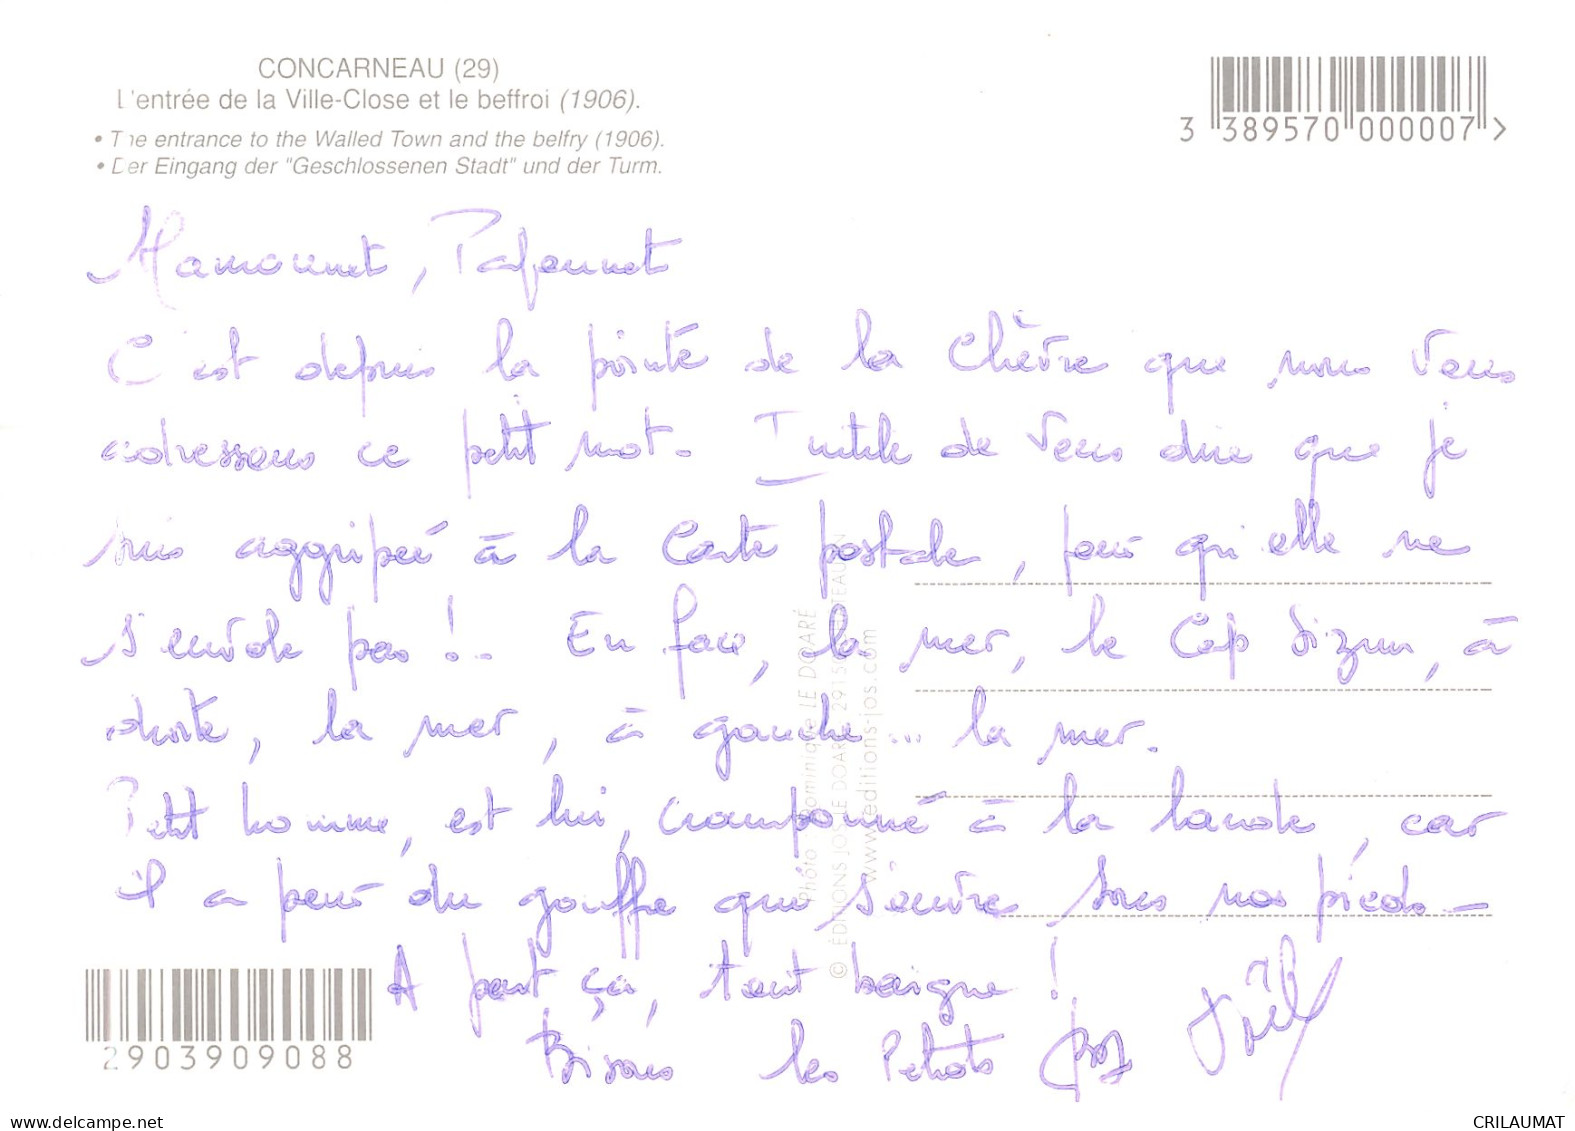 CONCARNEAU (29)
L'entrée de la Ville-Close et le beffroi (1906).
• The entrance to the Walled Town and the belfry (1906).
• Der Eingang der "Geschlossenen Stadt" und der Turm.
3 389570 000007 >
Mamounet, Papounet
C'est depuis la pointe de la Chèvre que nous vous
adressons ce petit mot. Inutile de vous dire que je
suis aggripée à la carte postale, pour qu'elle ne
s'envole pas !.. En face, la mer, le Cap Sizun, à
droite, la mer, à gauche... la mer.
Petit homme, est lui, cramponné à la lande, car
il a peur du gouffre qui s'ouvre sous nos pieds -
A part ça, tout baigne !
Bisous les Petiots Joël
Photo : Dominique LE DOARÉ
© ÉDITIONS JOS LE DOARÉ 29150 CHÂTEAULIN
www.editions-jos.com
2903909088
CRILAUMAT
www.delcampe.net